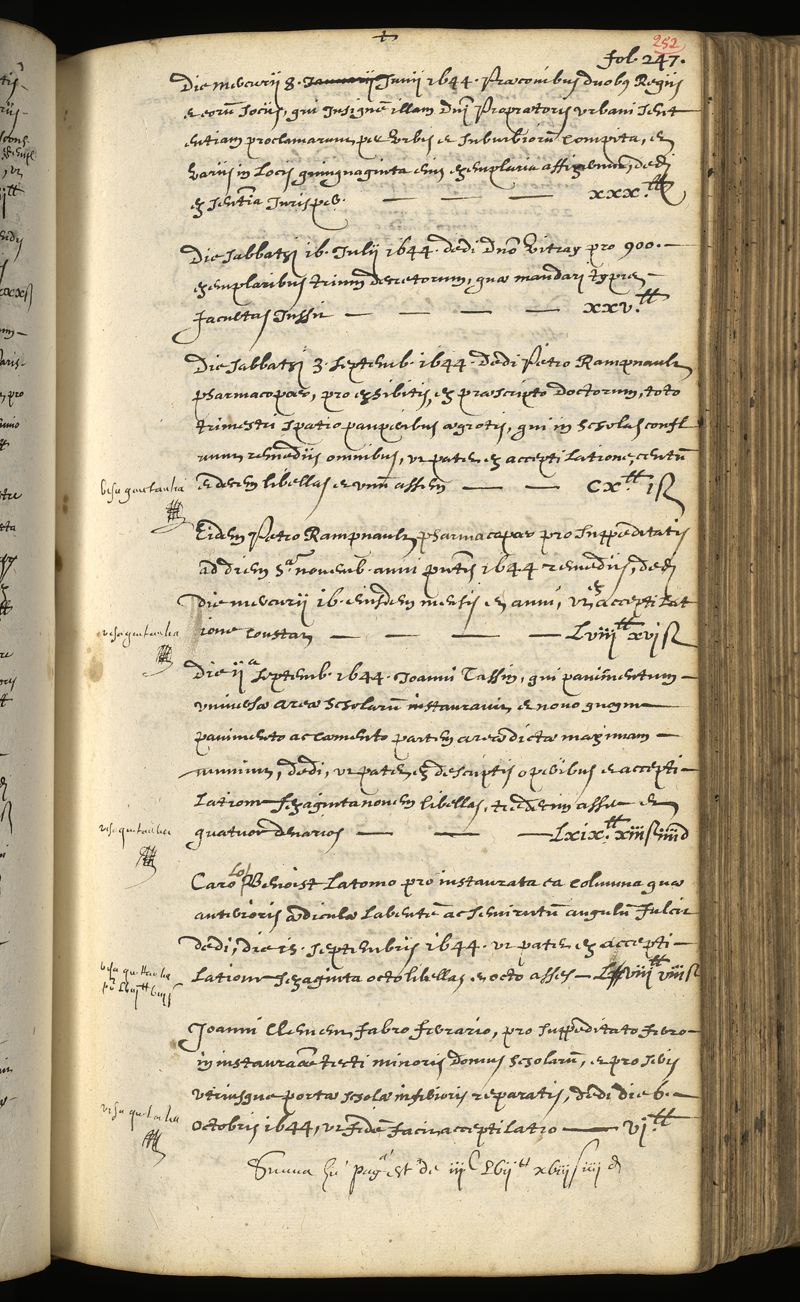 252
fol. 247.
Die mercurii 8. Januarii Junii 1644. Præconibus duobꝰ Regiis
et eorū Sociis, qui Insignē illam Dnī Proprætoris urbani Sent
entiam proclamarunt per Urbis et suburbiorū compita, et
variis in Locis quinquaginta eius exemplaria affixerunt, dedi
ex sententia Jurisper. — — — xxx.tt
Die Sabbathi 16. Julii 1644. dedi Dnō Vitray pro 900. —
exemplaribus trium decretorum, quæ mandari typis —
facultas Jussit — — — — xxv.tt
Die Sabbathi 3. Septemb. 1644. Dedi Petro Rampnault
pharmacopæo, pro exhibitis, ex præscripto doctorum, toto
trimestri spatio pauperibus ægrotis, qui in scholas confl
uunt remediis omnibus, ut patet ex acceptilatione, centū
et decem libellas et unū assem — — cx.tt is
visa quictantia
Eidem Petro Rampnault pharmacopæo pro suppeditatis
ad diem 5.a novemb. anni pntis 1644 remediis, dedi
die mercurii 16. eiusdem mensis et anni, ut ex acceptilat
ione constat — — — — Lviii tt xvis
visa quictantia
Die iia Septemb. 1644. Joanni Tassin, qui pavimentum —
universæ areæ scholarū instauravit et novo quoque —
pavimento ac cæmento partem areæ dictæ maximam —
munivit, dedi, ut patet ex descriptis operibus et accepti —
Latione sexaginta novem libellas, tredecim asses et
quatuor denarios — — — Lxix.tt xiiis iiiid
visa quictantia
Carolo Benoist Latomo pro instaurata ea columna quæ
anterioris ædiculæ labentē ac semirutū angulū fulcit
dedi, die 15. Septembris 1644. ut patet ex accepti —
Latione sexaginta octo libellas et octo asses — Lxviii tt viiis
visa quictantia
Joanni Clement fabro ferrario, pro suppeditato ferro —
in instauraōne tecti minoris domus scholarū, et pro seris
utriusque portæ scholæ inferioris reparatis, dedi die 6. —
octobris 1644, ut fidē facit acceptilatio — vi.tt
visa quictantia
Summa huiꝰ pagᵃ est de iiic Lvii tt xviiis iiii d